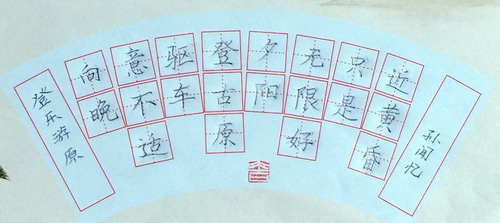 登乐游原
向晚
意不适
驱车
登古原
夕阳
无限好
只是
近黄昏
孙闻忆